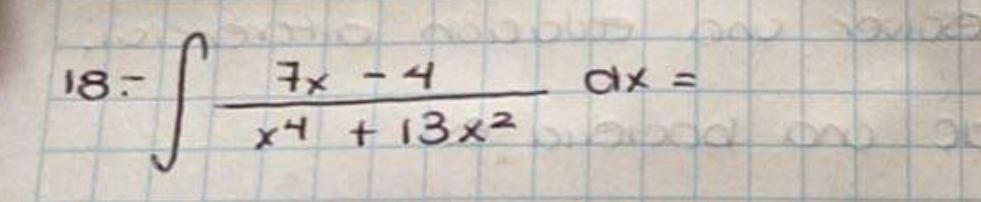 18.- ∫ (7x - 4)/(x⁴ + 13x²) dx =